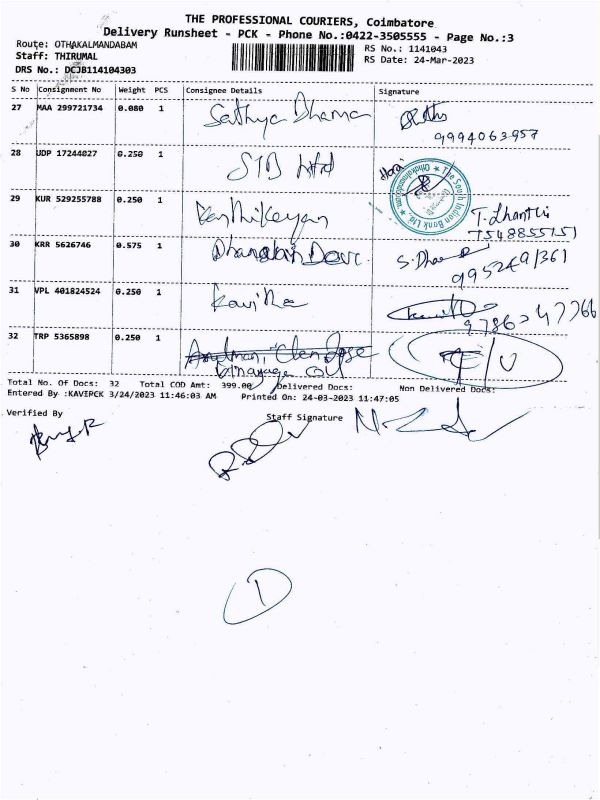 THE PROFESSIONAL COURIERS, Coimbatore
Delivery Runsheet - PCK - Phone No.:0422-3505555 - Page No.:3
Route: OTHAKALMANDABAM
RS No.: 1141043
Staff: THIRUMAL
RS Date: 24-Mar-2023
DRS No.: DCJB114104303
S No Consignment No Weight PCS Consignee Details Signature
27 MAA 299721734 0.080 1 Sathya Dharma
9994063957
28 UDP 17244827 0.250 1 SIB Ltd
The South Indian Bank Ltd.
29 KUR 529255788 0.250 1 Karthikeyan
7548855151
30 KRR 5626746 0.575 1 Dhanalaxmi Devi S. Dha
31 VPL 401824524 0.250 1 Kavitha
9786247766
32 TRP 5365898 0.250 1
Vinayaga Oil
Total No. Of Docs: 32 Total COD Amt: 399.00 Delivered Docs: Non Delivered Docs:
Entered By :KAVIPCK 3/24/2023 11:46:03 AM Printed On: 24-03-2023 11:47:05
Verified By
Staff Signature
1